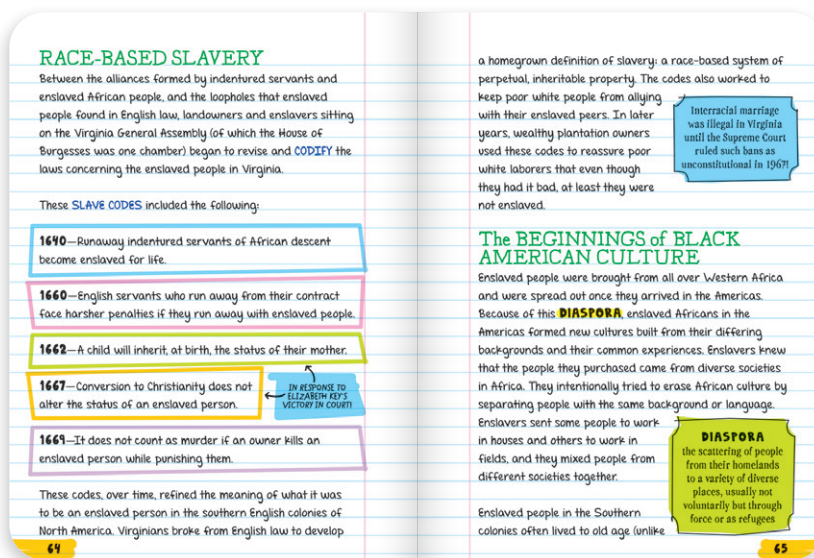 RACE-BASED SLAVERY
Between the alliances formed by indentured servants and
enslaved African people, and the loopholes that enslaved
people found in English law, landowners and enslavers sitting
on the Virginia General Assembly (of which the House of
Burgesses was one chamber) began to revise and CODIFY the
laws concerning the enslaved people in Virginia.
These SLAVE CODES included the following:
1640—Runaway indentured servants of African descent
become enslaved for life.
1660—English servants who run away from their contract
face harsher penalties if they run away with enslaved people.
1662—A child will inherit, at birth, the status of their mother.
1667—Conversion to Christianity does not
alter the status of an enslaved person.
IN RESPONSE TO
ELIZABETH KEY'S
VICTORY IN COURT!
1669—It does not count as murder if an owner kills an
enslaved person while punishing them.
These codes, over time, refined the meaning of what it was
to be an enslaved person in the southern English colonies of
North America. Virginians broke from English law to develop
64
a homegrown definition of slavery: a race-based system of
perpetual, inheritable property. The codes also worked to
keep poor white people from allying
with their enslaved peers. In later
years, wealthy plantation owners
used these codes to reassure poor
white laborers that even though
they had it bad, at least they were
not enslaved.
Interracial marriage
was illegal in Virginia
until the Supreme Court
ruled such bans as
unconstitutional in 1967!
The BEGINNINGS of BLACK
AMERICAN CULTURE
Enslaved people were brought from all over Western Africa
and were spread out once they arrived in the Americas.
Because of this DIASPORA, enslaved Africans in the
Americas formed new cultures built from their differing
backgrounds and their common experiences. Enslavers knew
that the people they purchased came from diverse societies
in Africa. They intentionally tried to erase African culture by
separating people with the same background or language.
Enslavers sent some people to work
in houses and others to work in
fields, and they mixed people from
different societies together.
DIASPORA
the scattering of people
from their homelands
to a variety of diverse
places, usually not
voluntarily but through
force or as refugees
Enslaved people in the Southern
colonies often lived to old age (unlike
65